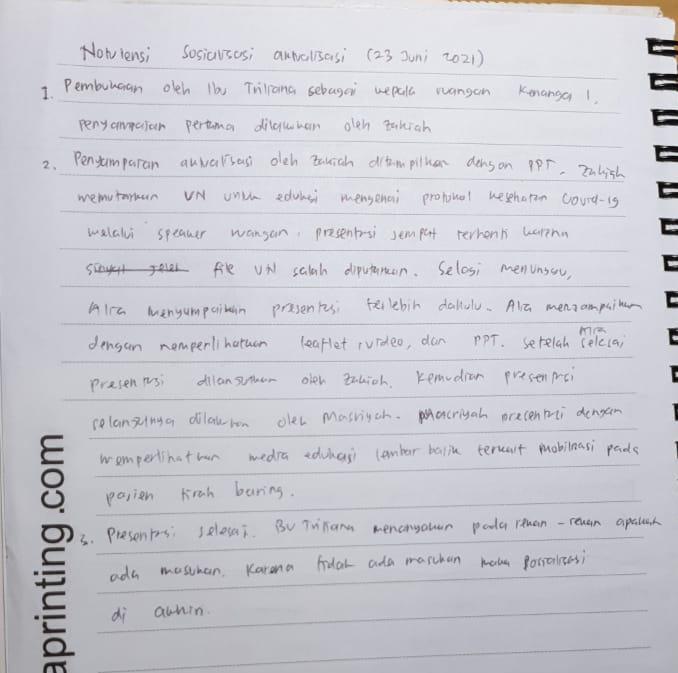 Notulensi Sosialisasi aktualisasi (23 Juni 2021)
1. Pembukaan oleh Ibu Trikana sebagai kepala ruangan Kenanga 1.
penyampaian pertama dilakukan oleh Zakiah
2. Penyamparan aktualisasi oleh Zakiah ditampilkan dengan PPT. Zakiah
memutarkan VN untuk edukasi mengenai protokol kesehatan Covid-19
melalui speaker ruangan. presentasi sempat terhenti karena
file VN salah diputarkan. Selagi menunggu,
Alra menyampaikan presentasi terlebih dahulu. Alra menyampaikan
dengan memperlihatkan leaflet, video, dan PPT. setelah Alra selesai
presentasi dilanjutkan oleh Zakiah. Kemudian presentasi
selanjutnya dilakukan oleh Masriyah. Masriyah presentasi dengan
memperlihatkan media edukasi lembar balik terkait mobilisasi pada
pasien tirah baring.
3. Presentasi selesai. Bu Trikana menanyakan pada rekan-rekan apakah
ada masukan. Karena tidak ada masukan maka sosialisasi
di akhiri.
aprinting.com